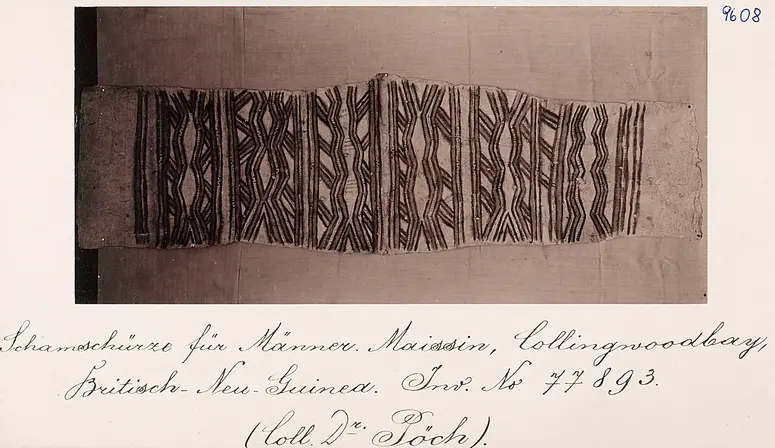 9608
Schamschürze für Männer. Maissin, Collingwoodbay,
Britisch-Neu-Guinea. Inv. No 77893.
(Coll. Dr. Pöch).